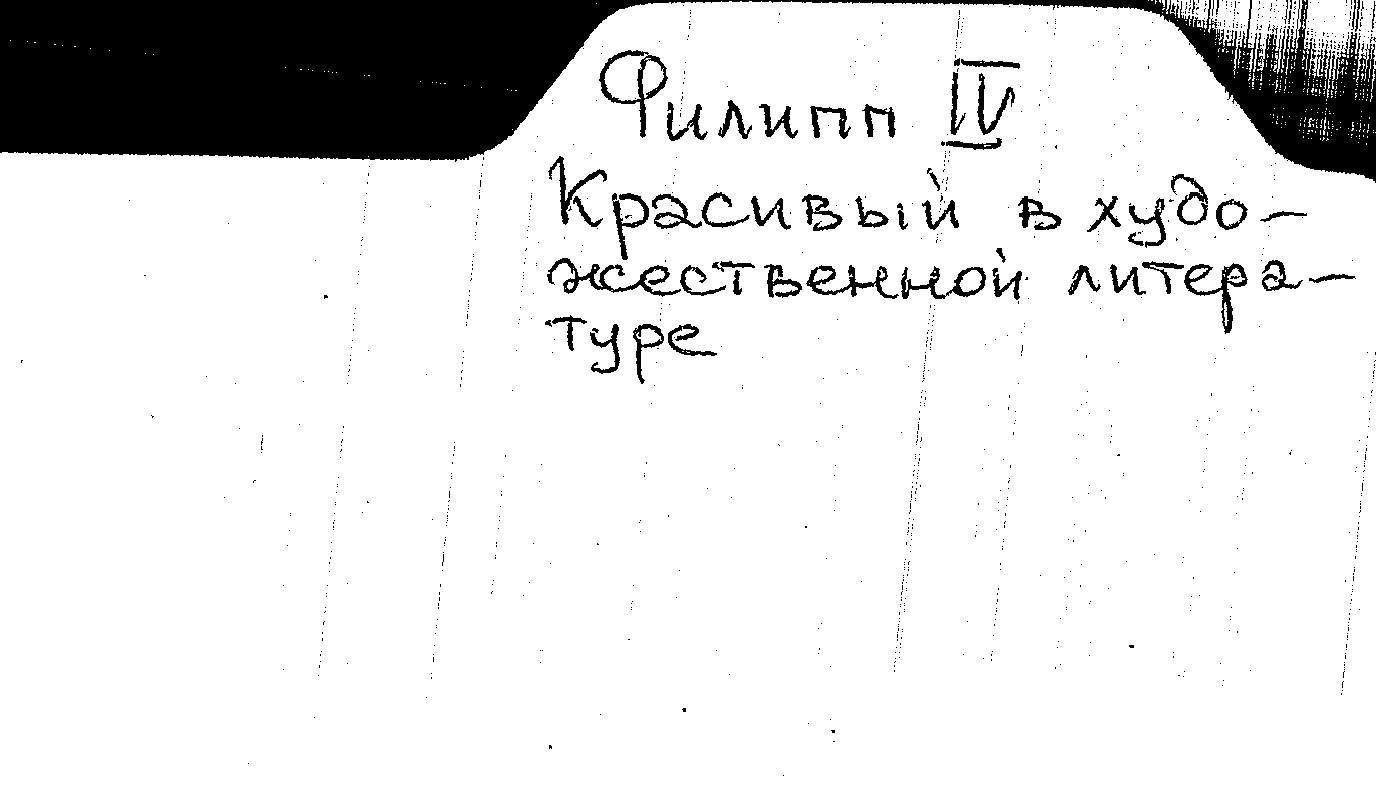 Филипп IV
Красивый в худо-
жественной литера-
туре